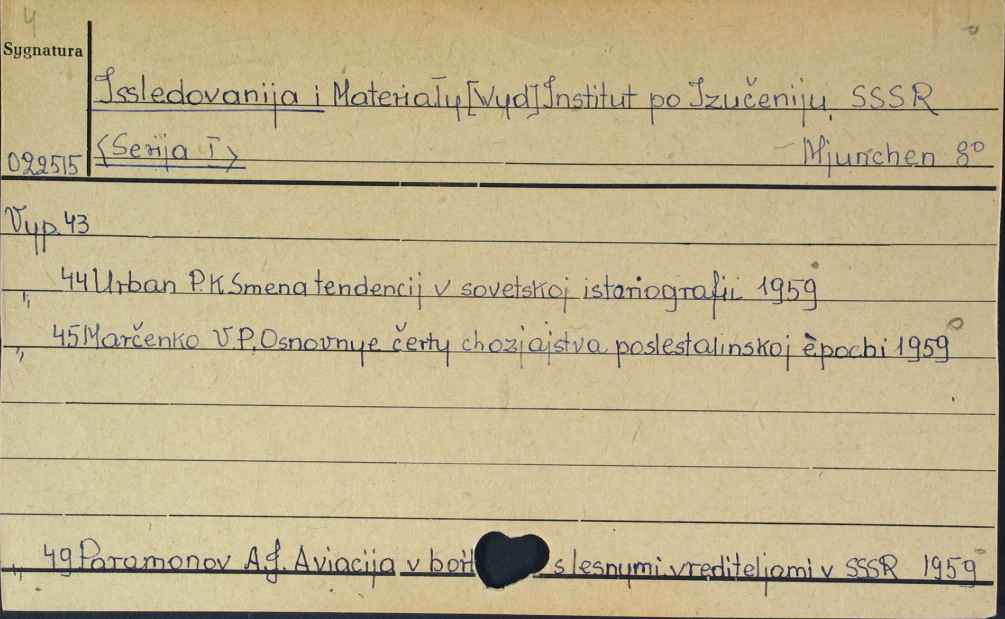 4
Sygnatura
Issledovanija i Materiały [Vyd] Institut po Izučeniju SSSR
022515 <Serija I> Mjunchen 8°
Vyp. 43
" 44 Urban P.K Smena tendencij v sovetskoj istoriografii 1959
" 45 Marčenko V.P. Osnovnye čerty chozjajstva poslestalinskoj èpochi 1959
" 49 Paramonov A.J. Aviacija v s lesnymi vrediteljami v SSSR 1959